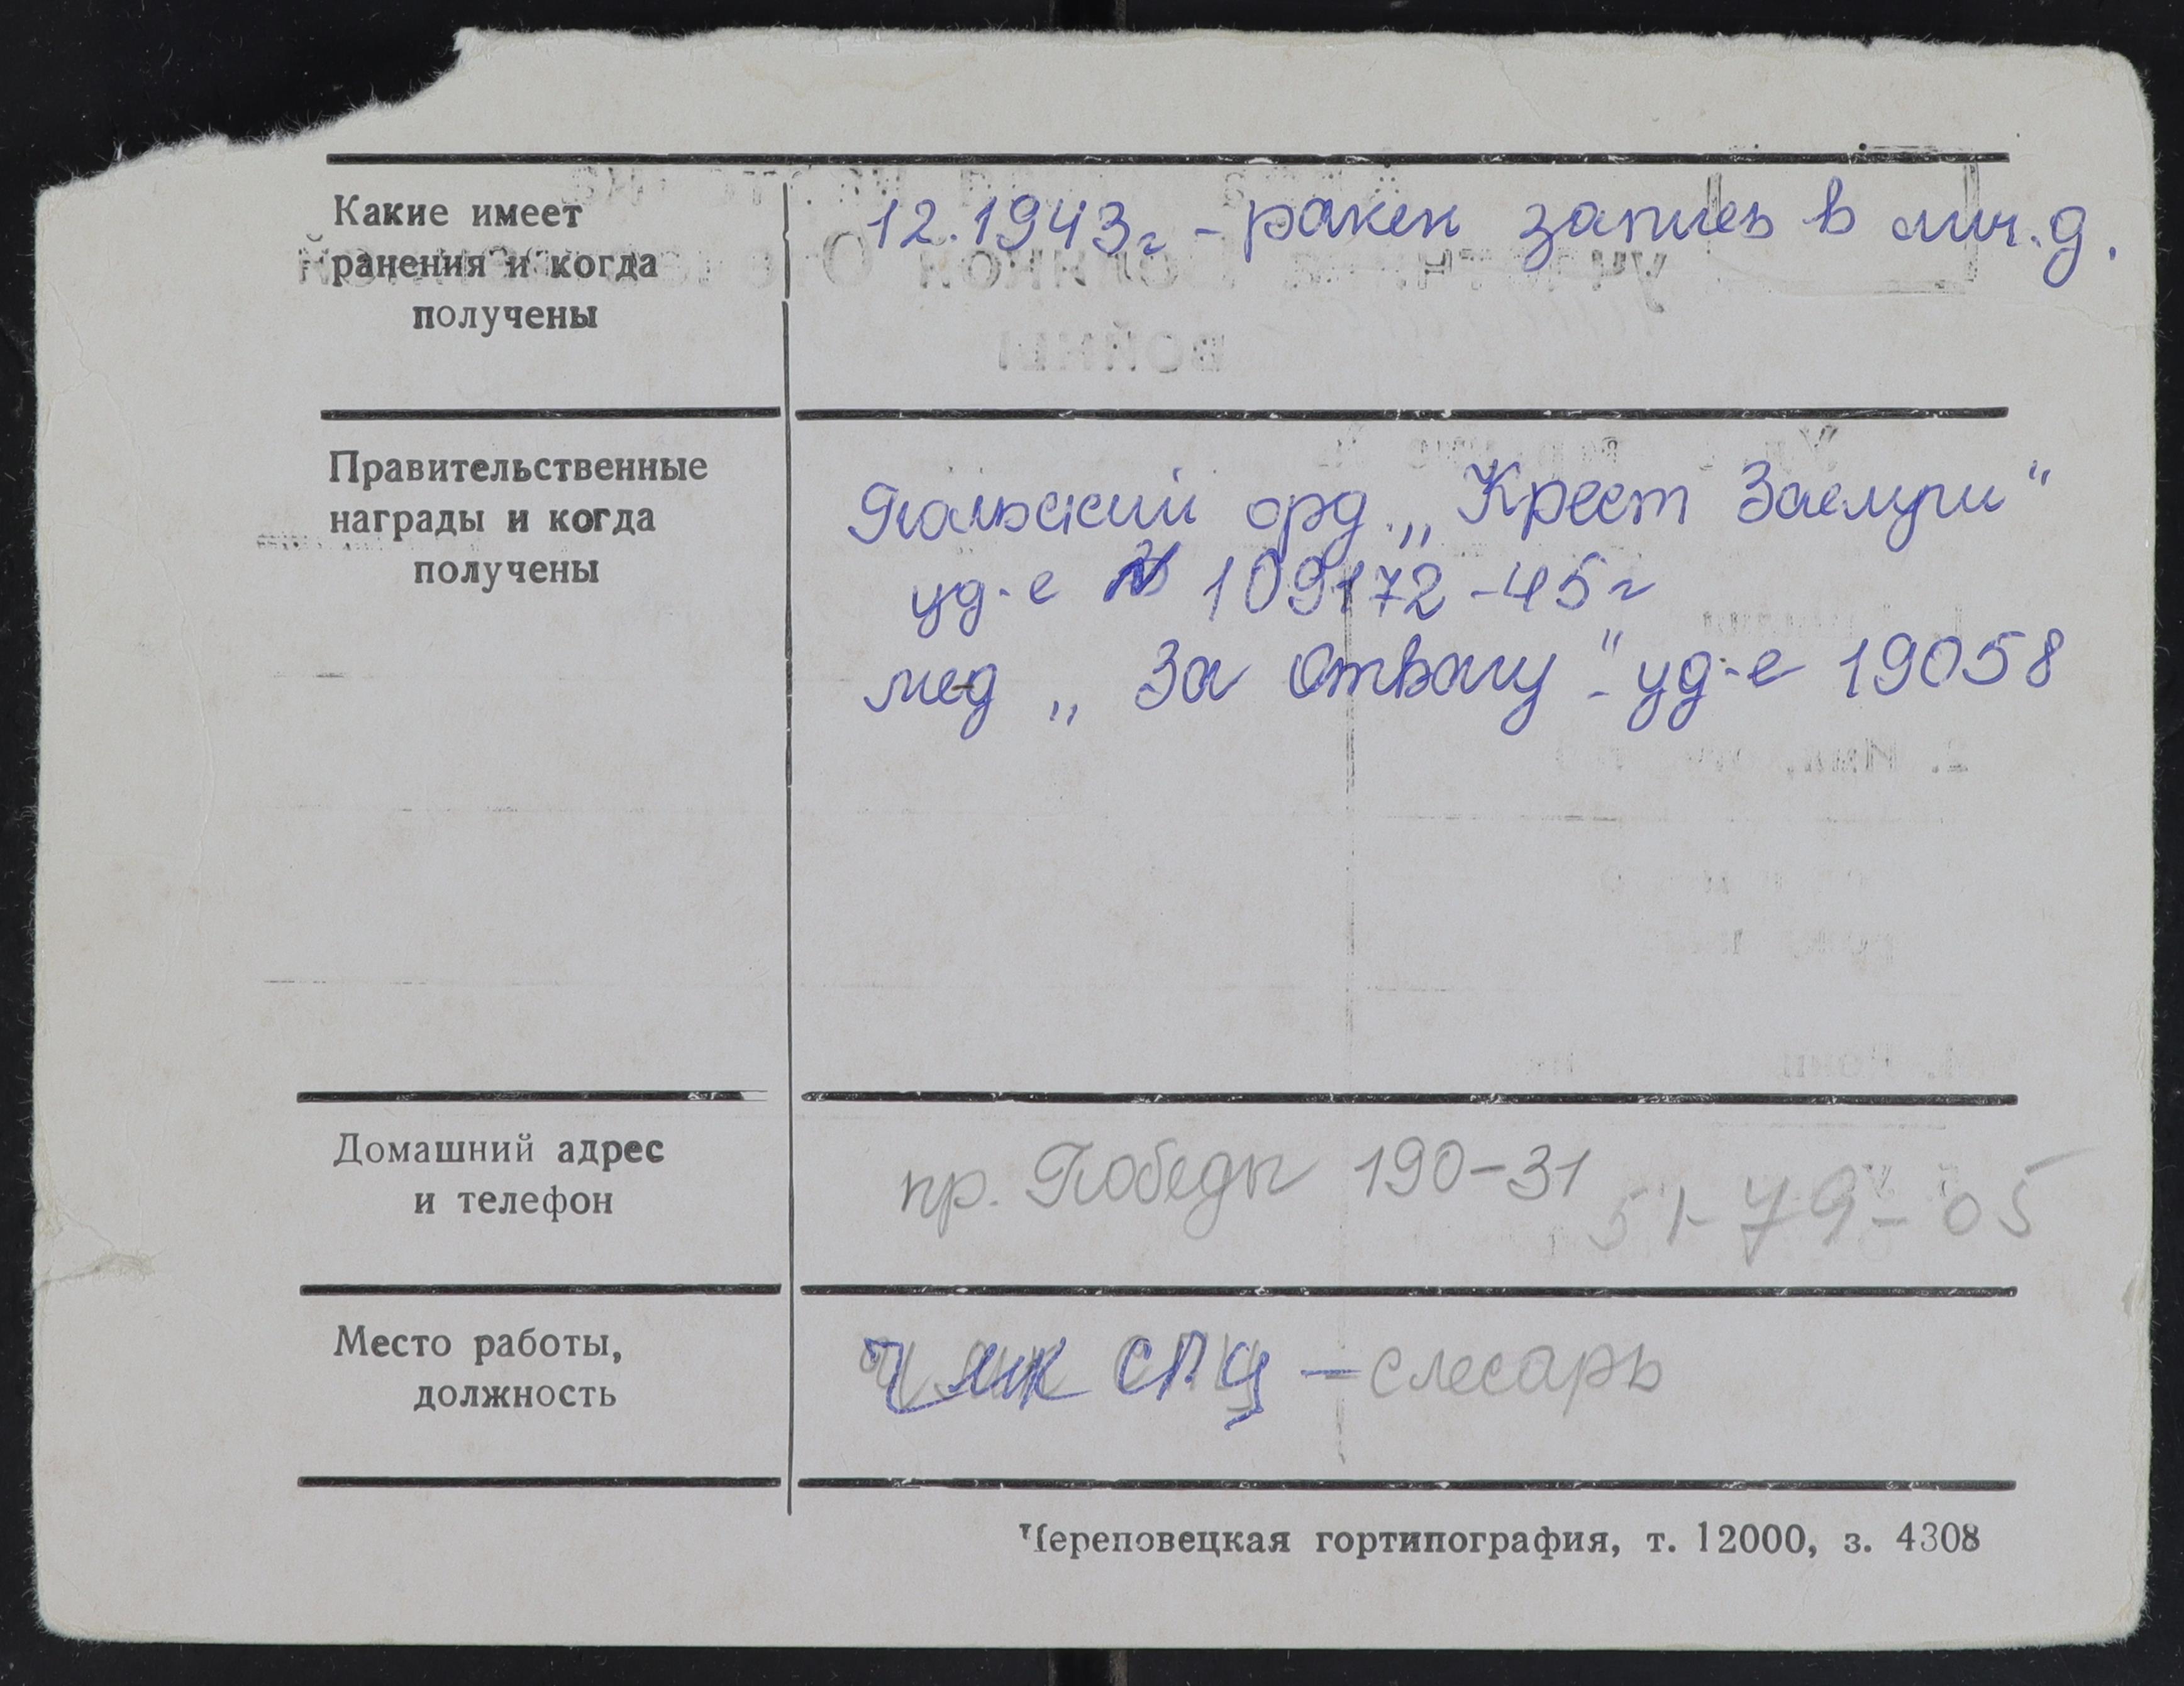 Какие имеет
ранения и когда
получены
12.1943г - ранен запись в лич.д.
Правительственные
награды и когда
получены
Польский орд. „Крест Заслуги“
уд-е № 109172 - 45г
мед „За Отвагу“ - уд-е 19058
Домашний адрес
и телефон
пр. Победы 190-31 51-79-05
Место работы,
должность
ЧМК СПЦ - слесарь
Череповецкая гортипография, т. 12000, з. 4308